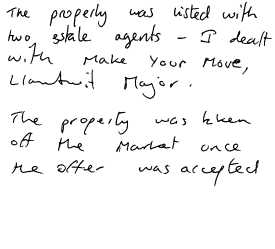 The property was listed with
two estate agents - I dealt
with Make Your Move,
Llantwit Major.
The property was taken
off the Market once
the offer was accepted